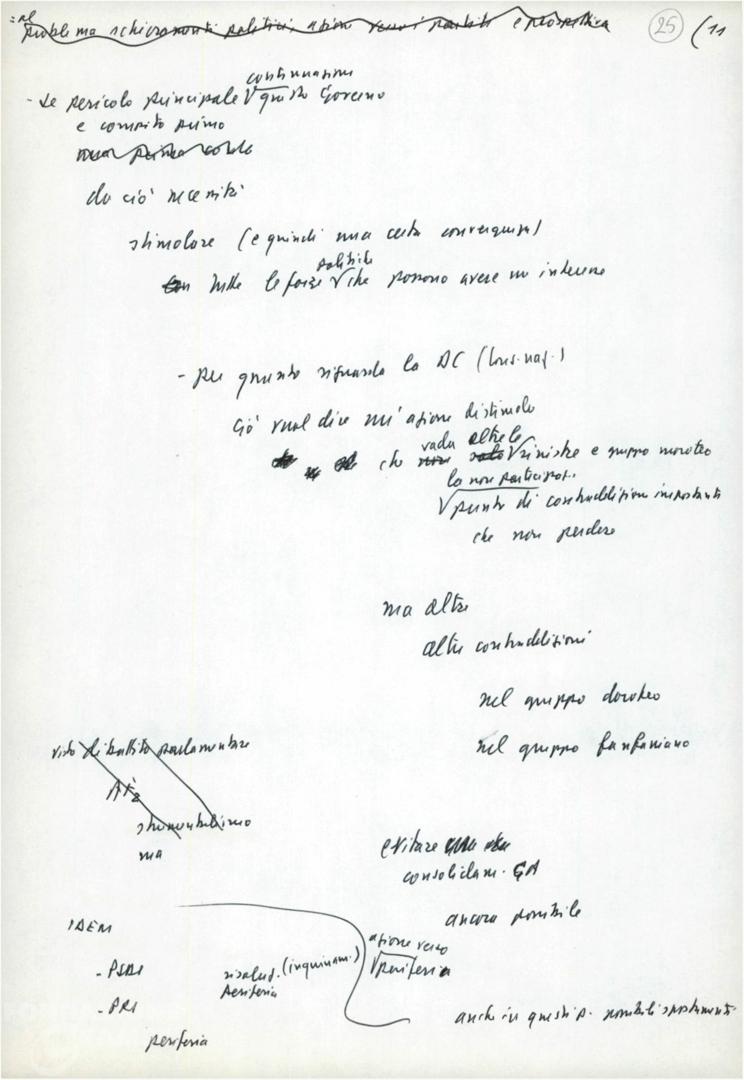 problema schieramenti politici, azione verso i partiti e prospettica
25 (11
continuazione
- Se pericolo principale √ questo Governo
e compito primo
da ciò necessità
stimolare (e quindi una certa convergenza)
politiche
con tutte le forze √ che possono avere un interesse
- per quanto riguarda la DC (Cons. naz.)
ciò vuol dire un'azione di stimolo
vada oltre le
che √ sinistre e gruppo moroteo
la non partecipaz.
√ punto di contraddizione importanti
che non perdere
ma altre
altre contraddizioni
nel gruppo doroteo
nel gruppo fanfaniano
visto dibattito parlamentare
ma
evitare
consolidam. CD
ancora possibile
IDEM
azione verso
- PSDI
risalud. (inquinam.) √ periferia
periferia
- PRI
anche in questi p. possibili spostamenti
periferia